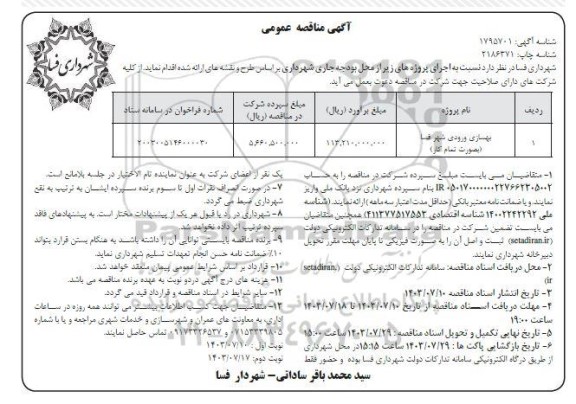 آگهی مناقصه عمومی
شناسه آگهی: ۱۷۹۵۷۰۱
شناسه چاپ: ۲۱۸۶۳۷۱
شهرداری فسا
شهرداری فسا در نظر دارد نسبت به اجرای پروژه های زیر از محل بودجه جاری شهرداری بر اساس طرح و نقشه های ارائه شده اقدام نماید. از کلیه
شرکت های دارای صلاحیت جهت شرکت در مناقصه دعوت بعمل می آید.
ردیف نام پروژه مبلغ برآورد (ریال) مبلغ سپرده شرکت در مناقصه (ریال) شماره فراخوان در سامانه ستاد
۱ بهسازی ورودی شهر فسا (بصورت تمام کار) ۱۱۳,۲۱۰,۰۰۰,۰۰۰ ۵,۶۶۰,۵۰۰,۰۰۰ ۲۰۰۳۰۰۵۱۴۶۰۰۰۰۳۰
۱- متقاضیان می بایست مبلغ سپرده شرکت در مناقصه را به حساب
بنام سپرده شهرداری نزد بانک ملی واریز
نمایند و یا ضمانت نامه معتبر بانکی (حداقل مدت اعتبار سه ماهه) ارائه نمایند. (شناسه
ملی ۱۴۰۰۲۲۴۲۲۹۲ شناسه اقتصادی ۴۱۱۳۷۷۵۱۷۵۵۳) همچنین متقاضیان
می بایست تضمین شرکت در مناقصه را در سامانه تدارکات الکترونیکی دولت
(setadiran.ir) ثبت و اصل آن را به صورت فیزیکی تا پایان مهلت مقرر تحویل
دبیرخانه شهرداری نمایند.
۲- محل دریافت اسناد مناقصه: سامانه تدارکات الکترونیکی دولت (setadiran.
ir)
۳- تاریخ انتشار اسناد مناقصه ۱۴۰۳/۰۷/۱۰
۴- مهلت دریافت اسناد مناقصه از تاریخ ۱۴۰۳/۰۷/۱۰ تا ۱۴۰۳/۰۷/۱۸
ساعت ۱۹:۰۰
۵- تاریخ نهایی تکمیل و تحویل اسناد مناقصه: ۱۴۰۳/۰۷/۲۹ ساعت ۱۵:۰۰
۶- تاریخ بازگشایی پاکت ها: ۱۴۰۳/۰۷/۲۹ ساعت ۱۵:۱۵ در محل شهرداری
از طریق درگاه الکترونیکی سامانه تدارکات دولت شهرداری فسا بوده و حضور فقط
یک نفر از اعضای شرکت به عنوان نماینده تام الاختیار در جلسه بلامانع است.
۷- در صورت انصراف نفرات اول تا سوم برنده سپرده ایشان به ترتیب به نفع
شهرداری ضبط می گردد.
۸- شهرداری در رد یا قبول هر یک از پیشنهادات مختار است. به پیشنهادهای فاقد
سپرده ترتیب اثر داده نخواهد شد.
۹- برنده مناقصه بایستی توانایی آن را داشته باشد به هنگام بستن قرارداد بتواند
۱۰٪ ضمانت نامه حسن انجام تعهدات تسلیم شهرداری نماید.
۱۰- قرارداد بر اساس شرایط عمومی پیمان منعقد خواهد شد.
۱۱- هزینه های درج آگهی در دو نوبت به عهده برنده مناقصه می باشد.
۱۲- سایر شرایط در اسناد مناقصه و قرارداد قید می گردد.
۱۳- متقاضیان جهت کسب اطلاعات بیشتر می توانند همه روزه در ساعات
اداری به معاونت های عمران و شهرسازی و خدمات شهری مراجعه و یا با شماره
تماس حاصل نمایند.
نوبت اول: ۱۴۰۳/۰۷/۱۰
نوبت دوم: ۱۴۰۳/۰۷/۱۷
سید محمد باقر ساداتی- شهردار فسا